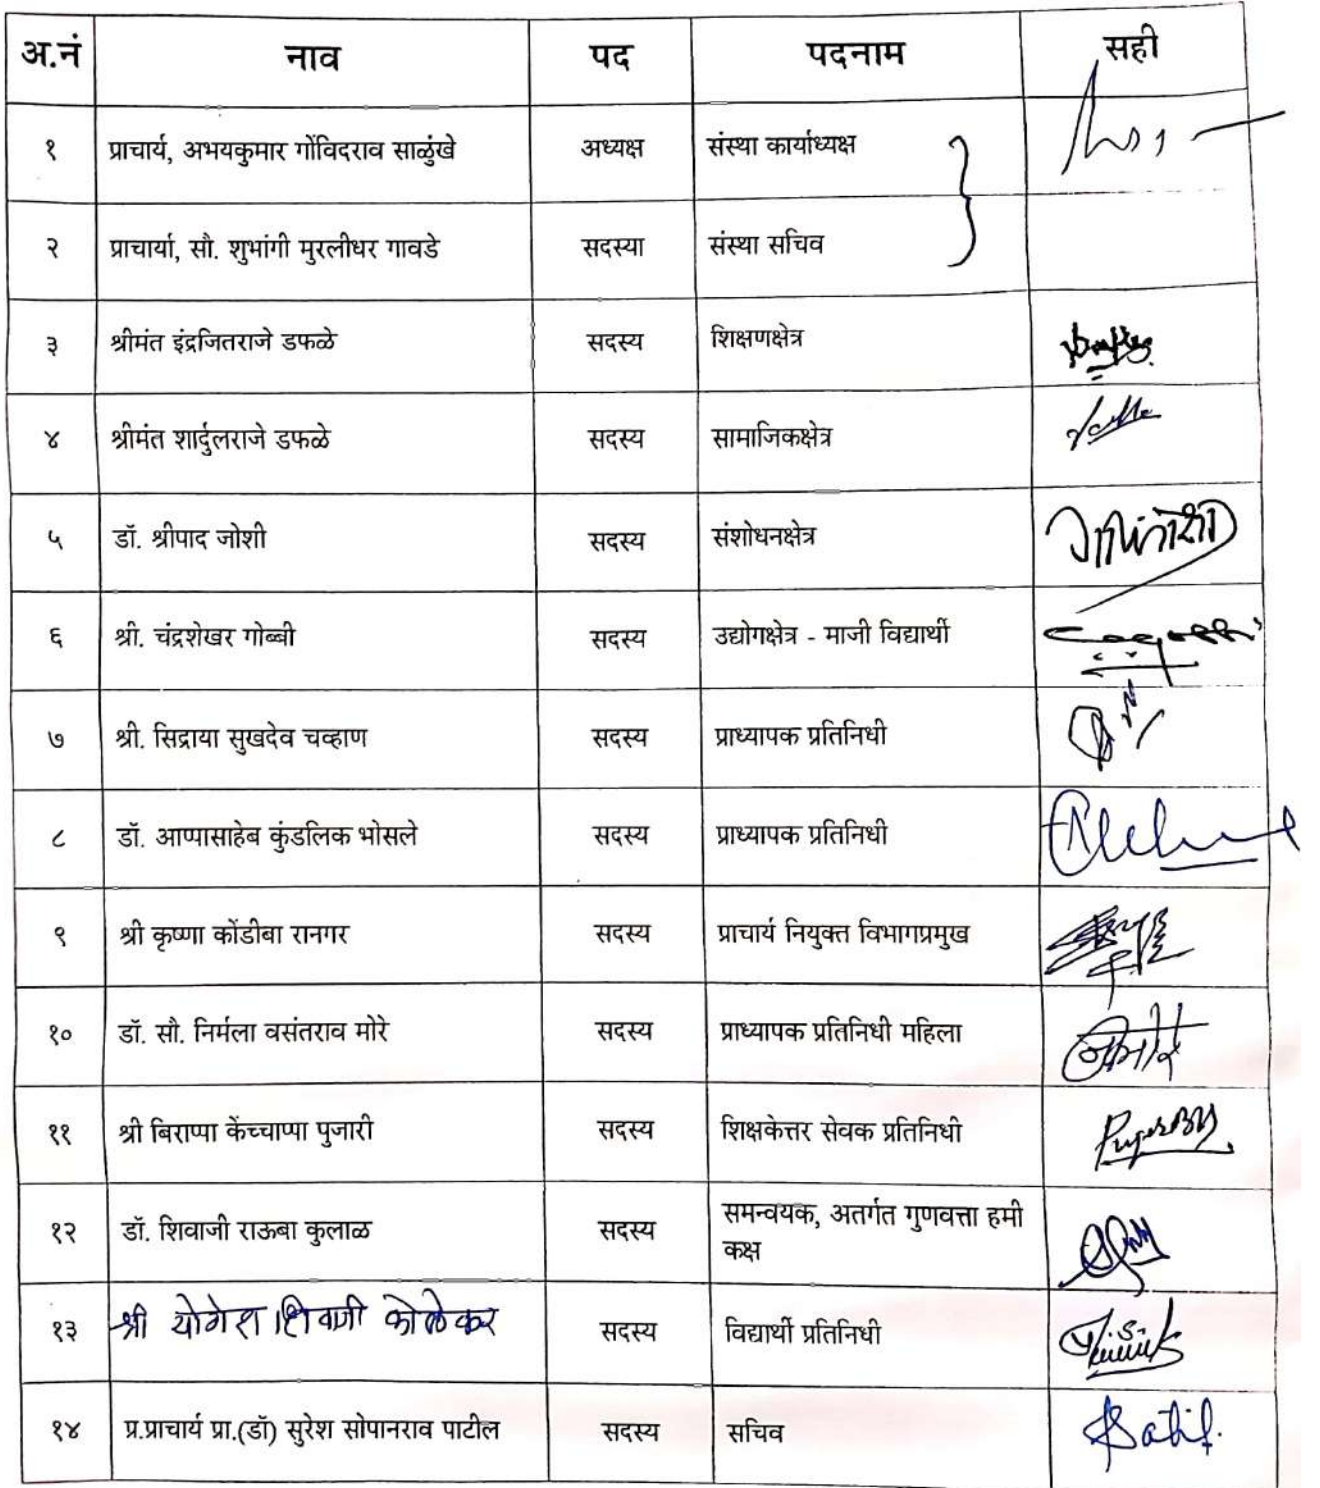 अ.नं नाव पद पदनाम सही
१ प्राचार्य, अभयकुमार गोंविदराव साळुंखे अध्यक्ष संस्था कार्याध्यक्ष
२ प्राचार्या, सौ. शुभांगी मुरलीधर गावडे सदस्या संस्था सचिव
३ श्रीमंत इंद्रजितराजे डफळे सदस्य शिक्षणक्षेत्र
४ श्रीमंत शार्दुलराजे डफळे सदस्य सामाजिकक्षेत्र
५ डॉ. श्रीपाद जोशी सदस्य संशोधनक्षेत्र
६ श्री. चंद्रशेखर गोब्बी सदस्य उद्योगक्षेत्र - माजी विद्यार्थी
७ श्री. सिद्राया सुखदेव चव्हाण सदस्य प्राध्यापक प्रतिनिधी
८ डॉ. आप्पासाहेब कुंडलिक भोसले सदस्य प्राध्यापक प्रतिनिधी
९ श्री कृष्णा कोंडीबा रानगर सदस्य प्राचार्य नियुक्त विभागप्रमुख
१० डॉ. सौ. निर्मला वसंतराव मोरे सदस्य प्राध्यापक प्रतिनिधी महिला
११ श्री बिराप्पा केंच्चाप्पा पुजारी सदस्य शिक्षकेत्तर सेवक प्रतिनिधी
१२ डॉ. शिवाजी राऊबा कुलाळ सदस्य समन्वयक, अतर्गत गुणवत्ता हमी
कक्ष
१३ श्री योगेश शिवाजी कोळेकर सदस्य विद्यार्थी प्रतिनिधी
१४ प्र.प्राचार्य प्रा.(डॉ) सुरेश सोपानराव पाटील सदस्य सचिव